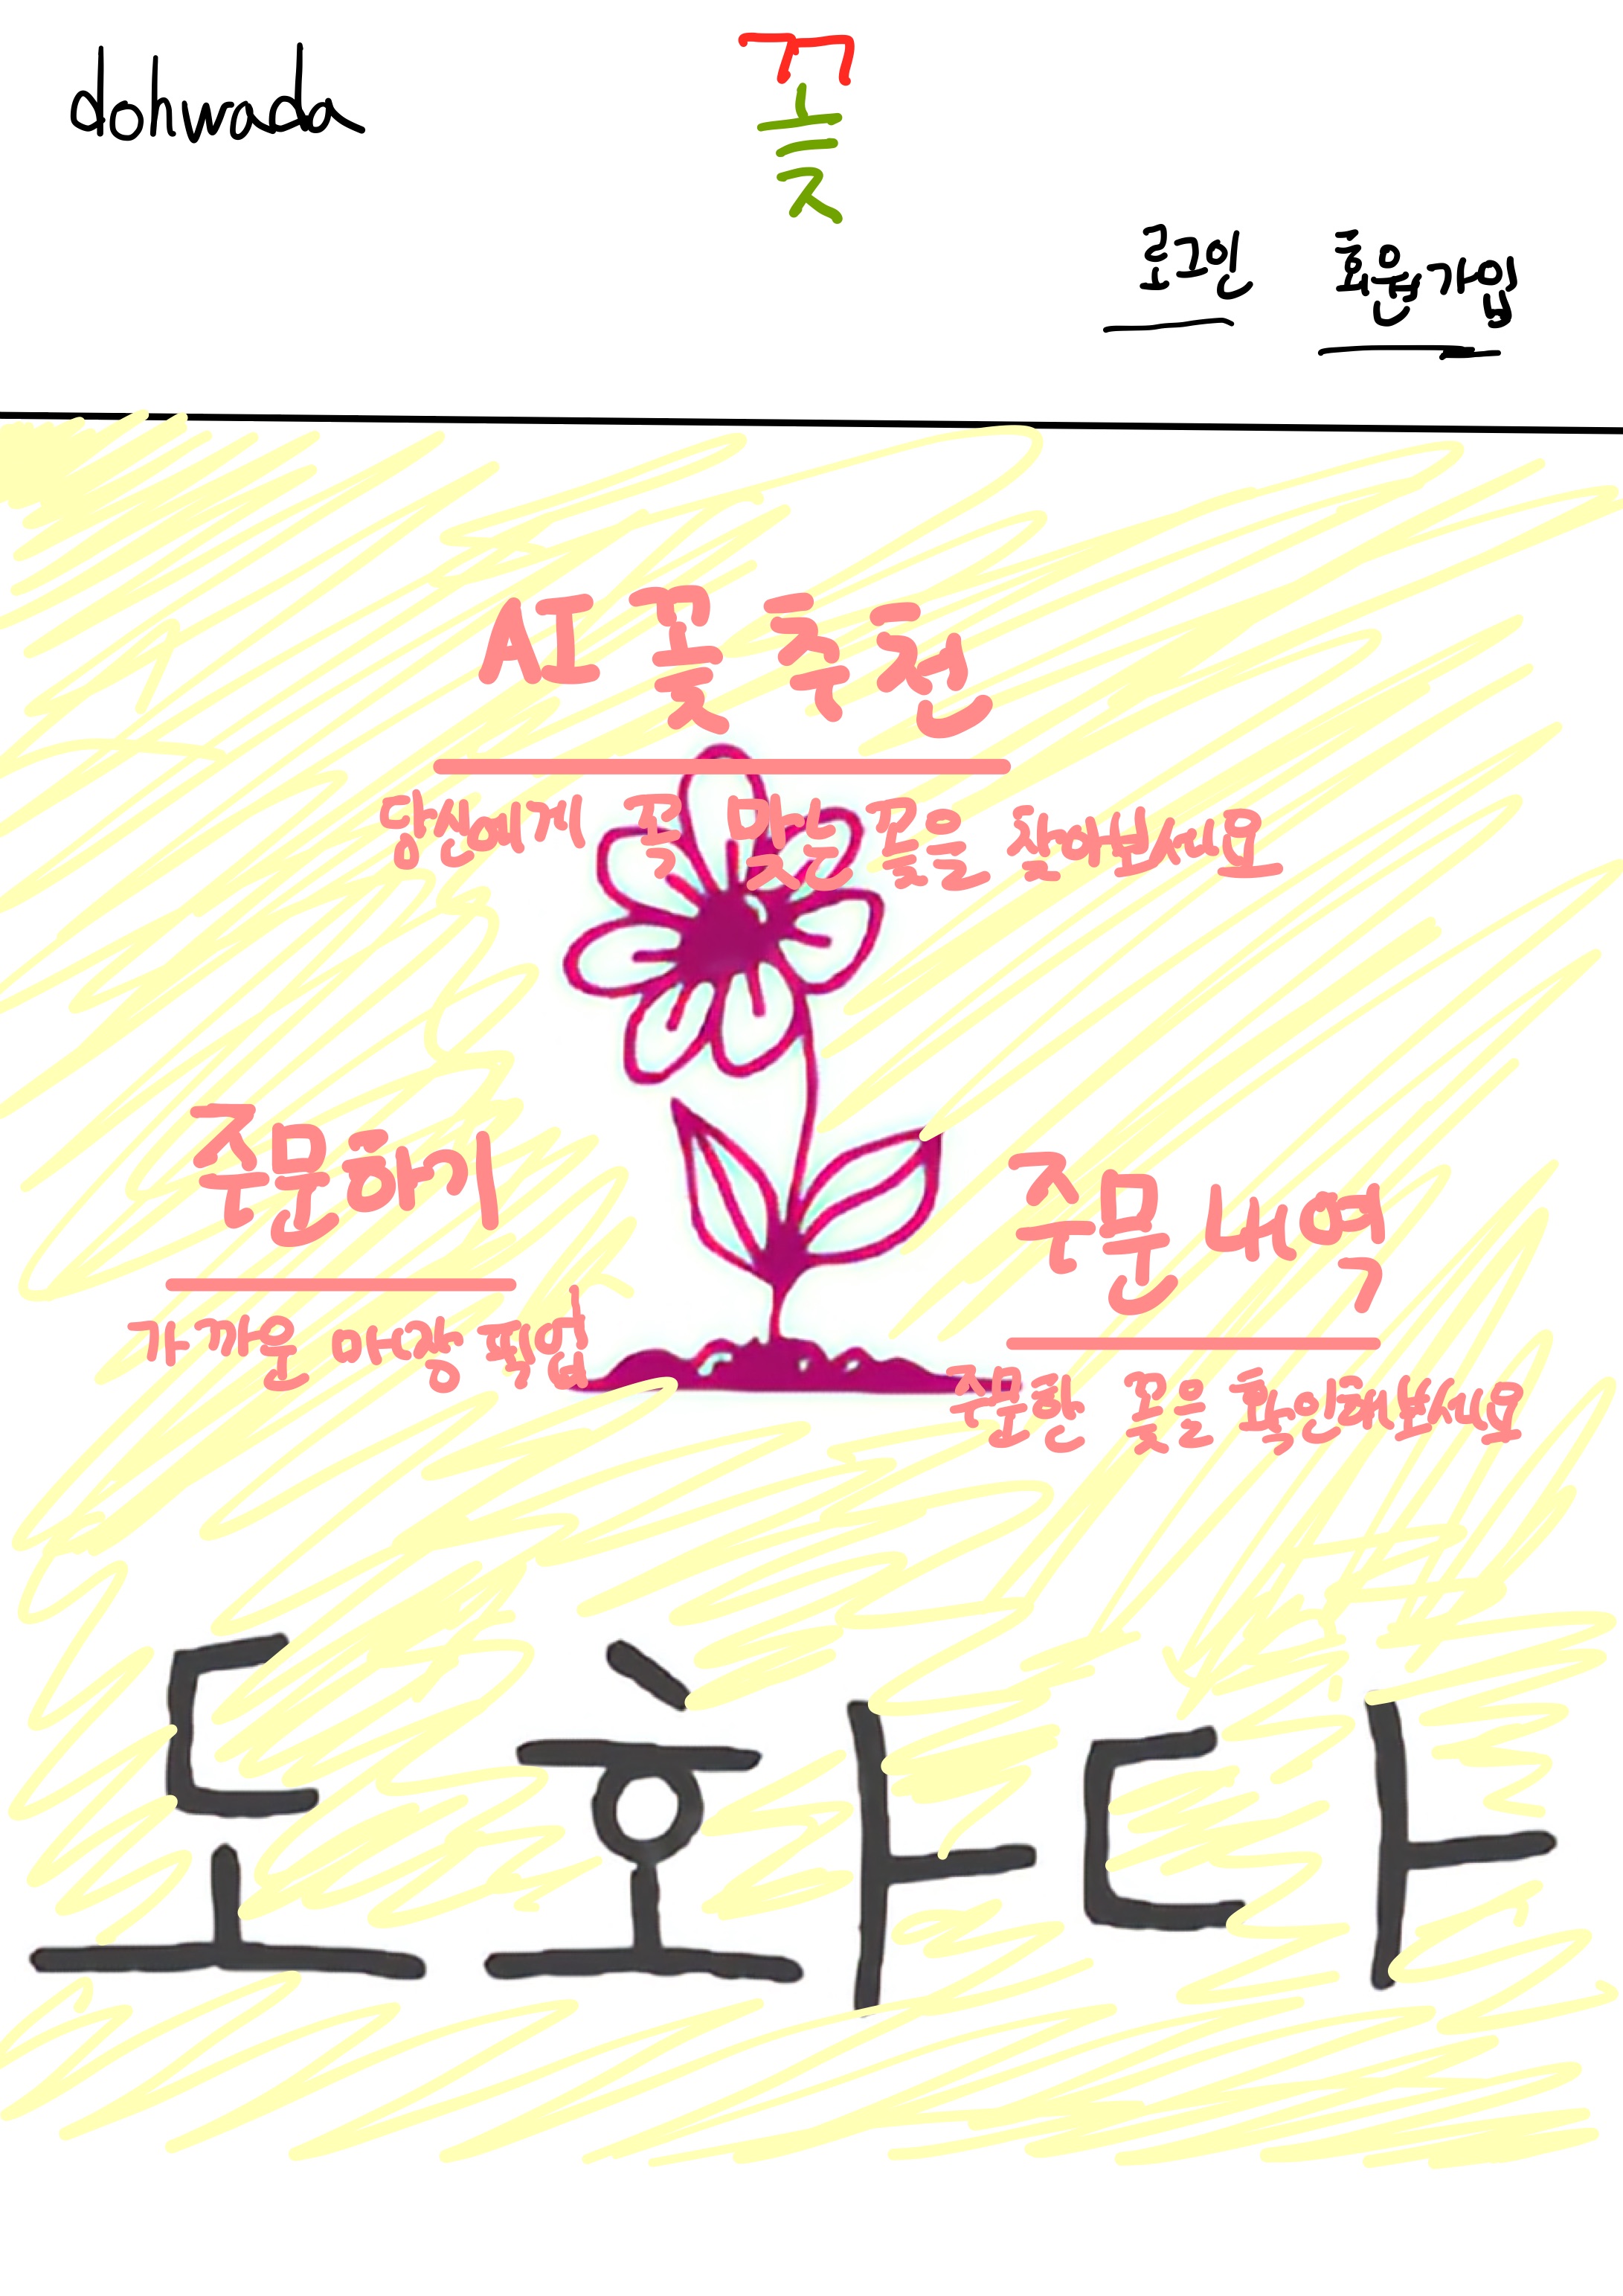 dohwada
꽃
로그인 회원가입
AI 꽃 추천
당신에게 꼭 맞는 꽃을 찾아보세요
주문하기
가까운 매장 픽업
주문 내역
주문한 꽃을 확인해보세요
도화다